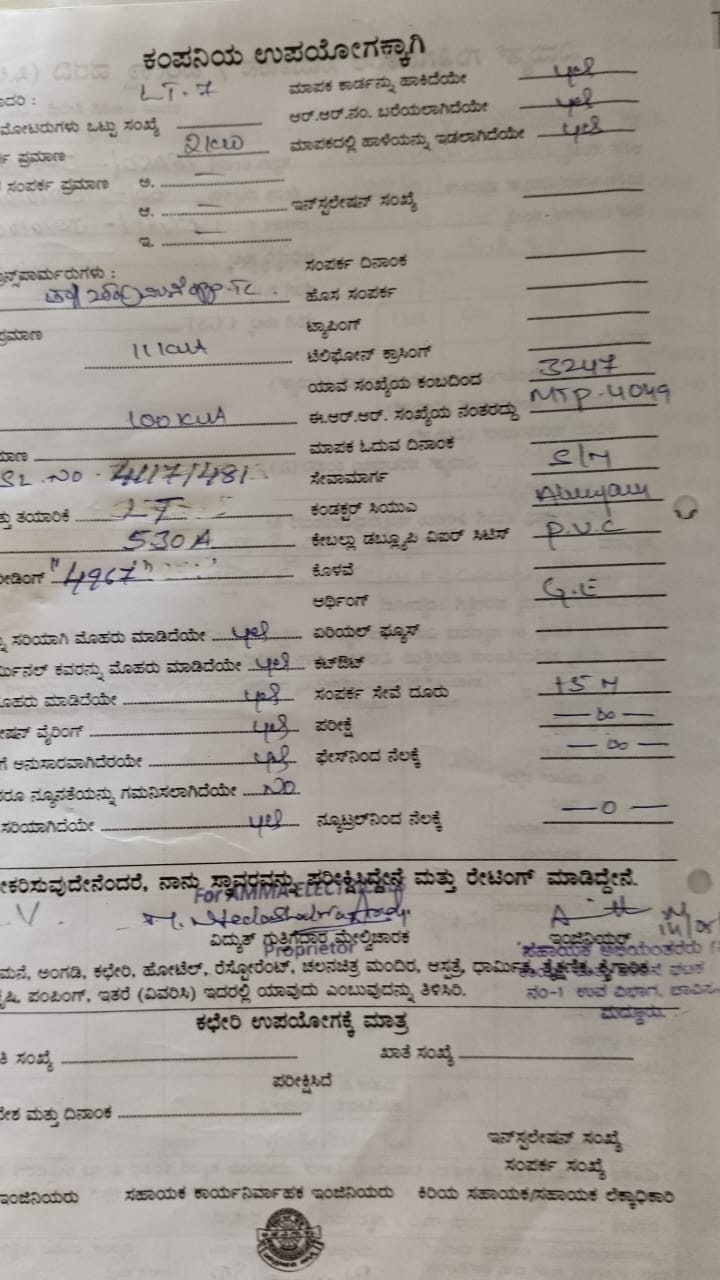 ಕಂಪನಿಯ ಉಪಯೋಗಕ್ಕಾಗಿ
LT.7 ಮಾಪಕ ಕಾರ್ಡನ್ನು ಹಾಕಿದೆಯೇ yes
ಮೋಟರುಗಳು ಒಟ್ಟು ಸಂಖ್ಯೆ ಆರ್.ಆರ್.ನಂ. ಬರೆಯಲಾಗಿದೆಯೇ yes
ಪ್ರಮಾಣ 2KW ಮಾಪಕದಲ್ಲಿ ಹಾಳೆಯನ್ನು ಇಡಲಾಗಿದೆಯೇ yes
ಸಂಪರ್ಕ ಪ್ರಮಾಣ ಅ. —
ಆ. — ಇನ್‌ಸ್ಟಲೇಷನ್ ಸಂಖ್ಯೆ
ಇ. —
ಸಂಪರ್ಕ ದಿನಾಂಕ
TC. ಹೊಸ ಸಂಪರ್ಕ
ಟ್ಯಾಪಿಂಗ್
11KVA ಟೆಲಿಫೋನ್ ಕ್ರಾಸಿಂಗ್
ಯಾವ ಸಂಖ್ಯೆಯ ಕಂಬದಿಂದ 3247
100 KVA ಈ.ಆರ್.ಆರ್. ಸಂಖ್ಯೆಯ ನಂತರದ್ದು MTP-4049
ಮಾಪಕ ಓದುವ ದಿನಾಂಕ
SL.NO - 41171481 ಸೇವಾಮಾರ್ಗ S/M
ತಯಾರಿಕೆ LT ಕಂಡಕ್ಟರ್ ಸಿಯುಎ
530A ಕೇಬಲ್ಲು ಡಬ್ಲ್ಯೂಪಿ ವಿಐರ್ ಸಿಟಿಸ್ P.V.C
"4967" ಕೊಳವೆ
ಆರ್ಥಿಂಗ್ G.E
ಸರಿಯಾಗಿ ಮೊಹರು ಮಾಡಿದೆಯೇ yes ಏರಿಯಲ್ ಫ್ಯೂಸ್
ಕವರನ್ನು ಮೊಹರು ಮಾಡಿದೆಯೇ yes ಕಟ್‌ಔಟ್
ಮಾಡಿದೆಯೇ yes ಸಂಪರ್ಕ ಸೇವೆ ದೂರು 15 M
ವೈರಿಂಗ್ yes ಪರೀಕ್ಷೆ — ∞ —
ಅನುಸಾರವಾಗಿದೆರಯೇ yes ಫೇಸ್‌ನಿಂದ ನೆಲಕ್ಕೆ — ∞ —
ನ್ಯೂನತೆಯನ್ನು ಗಮನಿಸಲಾಗಿದೆಯೇ NO
ಸರಿಯಾಗಿದೆಯೇ yes ನ್ಯೂಟ್ರಲ್‌ನಿಂದ ನೆಲಕ್ಕೆ — 0 —
ನಾನು ಸ್ಥಾವರವನ್ನು ಪರೀಕ್ಷಿಸಿದ್ದೇನೆ ಮತ್ತು ರೇಟಿಂಗ್ ಮಾಡಿದ್ದೇನೆ.
For AMMA
ವಿದ್ಯುತ್ ಗುತ್ತಿಗೆದಾರ ಮೇಲ್ವಿಚಾರಕ ಇಂಜಿನಿಯರ್
Proprietor
ಮನೆ, ಅಂಗಡಿ, ಕಛೇರಿ, ಹೋಟೆಲ್, ರೆಸ್ಟೋರೆಂಟ್, ಚಲನಚಿತ್ರ ಮಂದಿರ, ಆಸ್ಪತ್ರೆ, ಧಾರ್ಮಿಕ, ಶೈಕ್ಷಣಿಕ, ಕೈಗಾರಿಕೆ
ಪಂಪಿಂಗ್, ಇತರೆ (ವಿವರಿಸಿ) ಇದರಲ್ಲಿ ಯಾವುದು ಎಂಬುವುದನ್ನು ತಿಳಿಸಿರಿ.
ನಂ-1 ಉಪ ವಿಭಾಗ,
ಮದ್ದೂರು.
ಕಛೇರಿ ಉಪಯೋಗಕ್ಕೆ ಮಾತ್ರ
ಸಂಖ್ಯೆ ಖಾತೆ ಸಂಖ್ಯೆ
ಪರೀಕ್ಷಿಸಿದೆ
ಮತ್ತು ದಿನಾಂಕ
ಇನ್‌ಸ್ಟಲೇಷನ್ ಸಂಖ್ಯೆ
ಸಂಪರ್ಕ ಸಂಖ್ಯೆ
ಇಂಜಿನಿಯರು ಸಹಾಯಕ ಕಾರ್ಯನಿರ್ವಾಹಕ ಇಂಜಿನಿಯರು ಕಿರಿಯ ಸಹಾಯಕ/ಸಹಾಯಕ ಲೆಕ್ಕಾಧಿಕಾರಿ